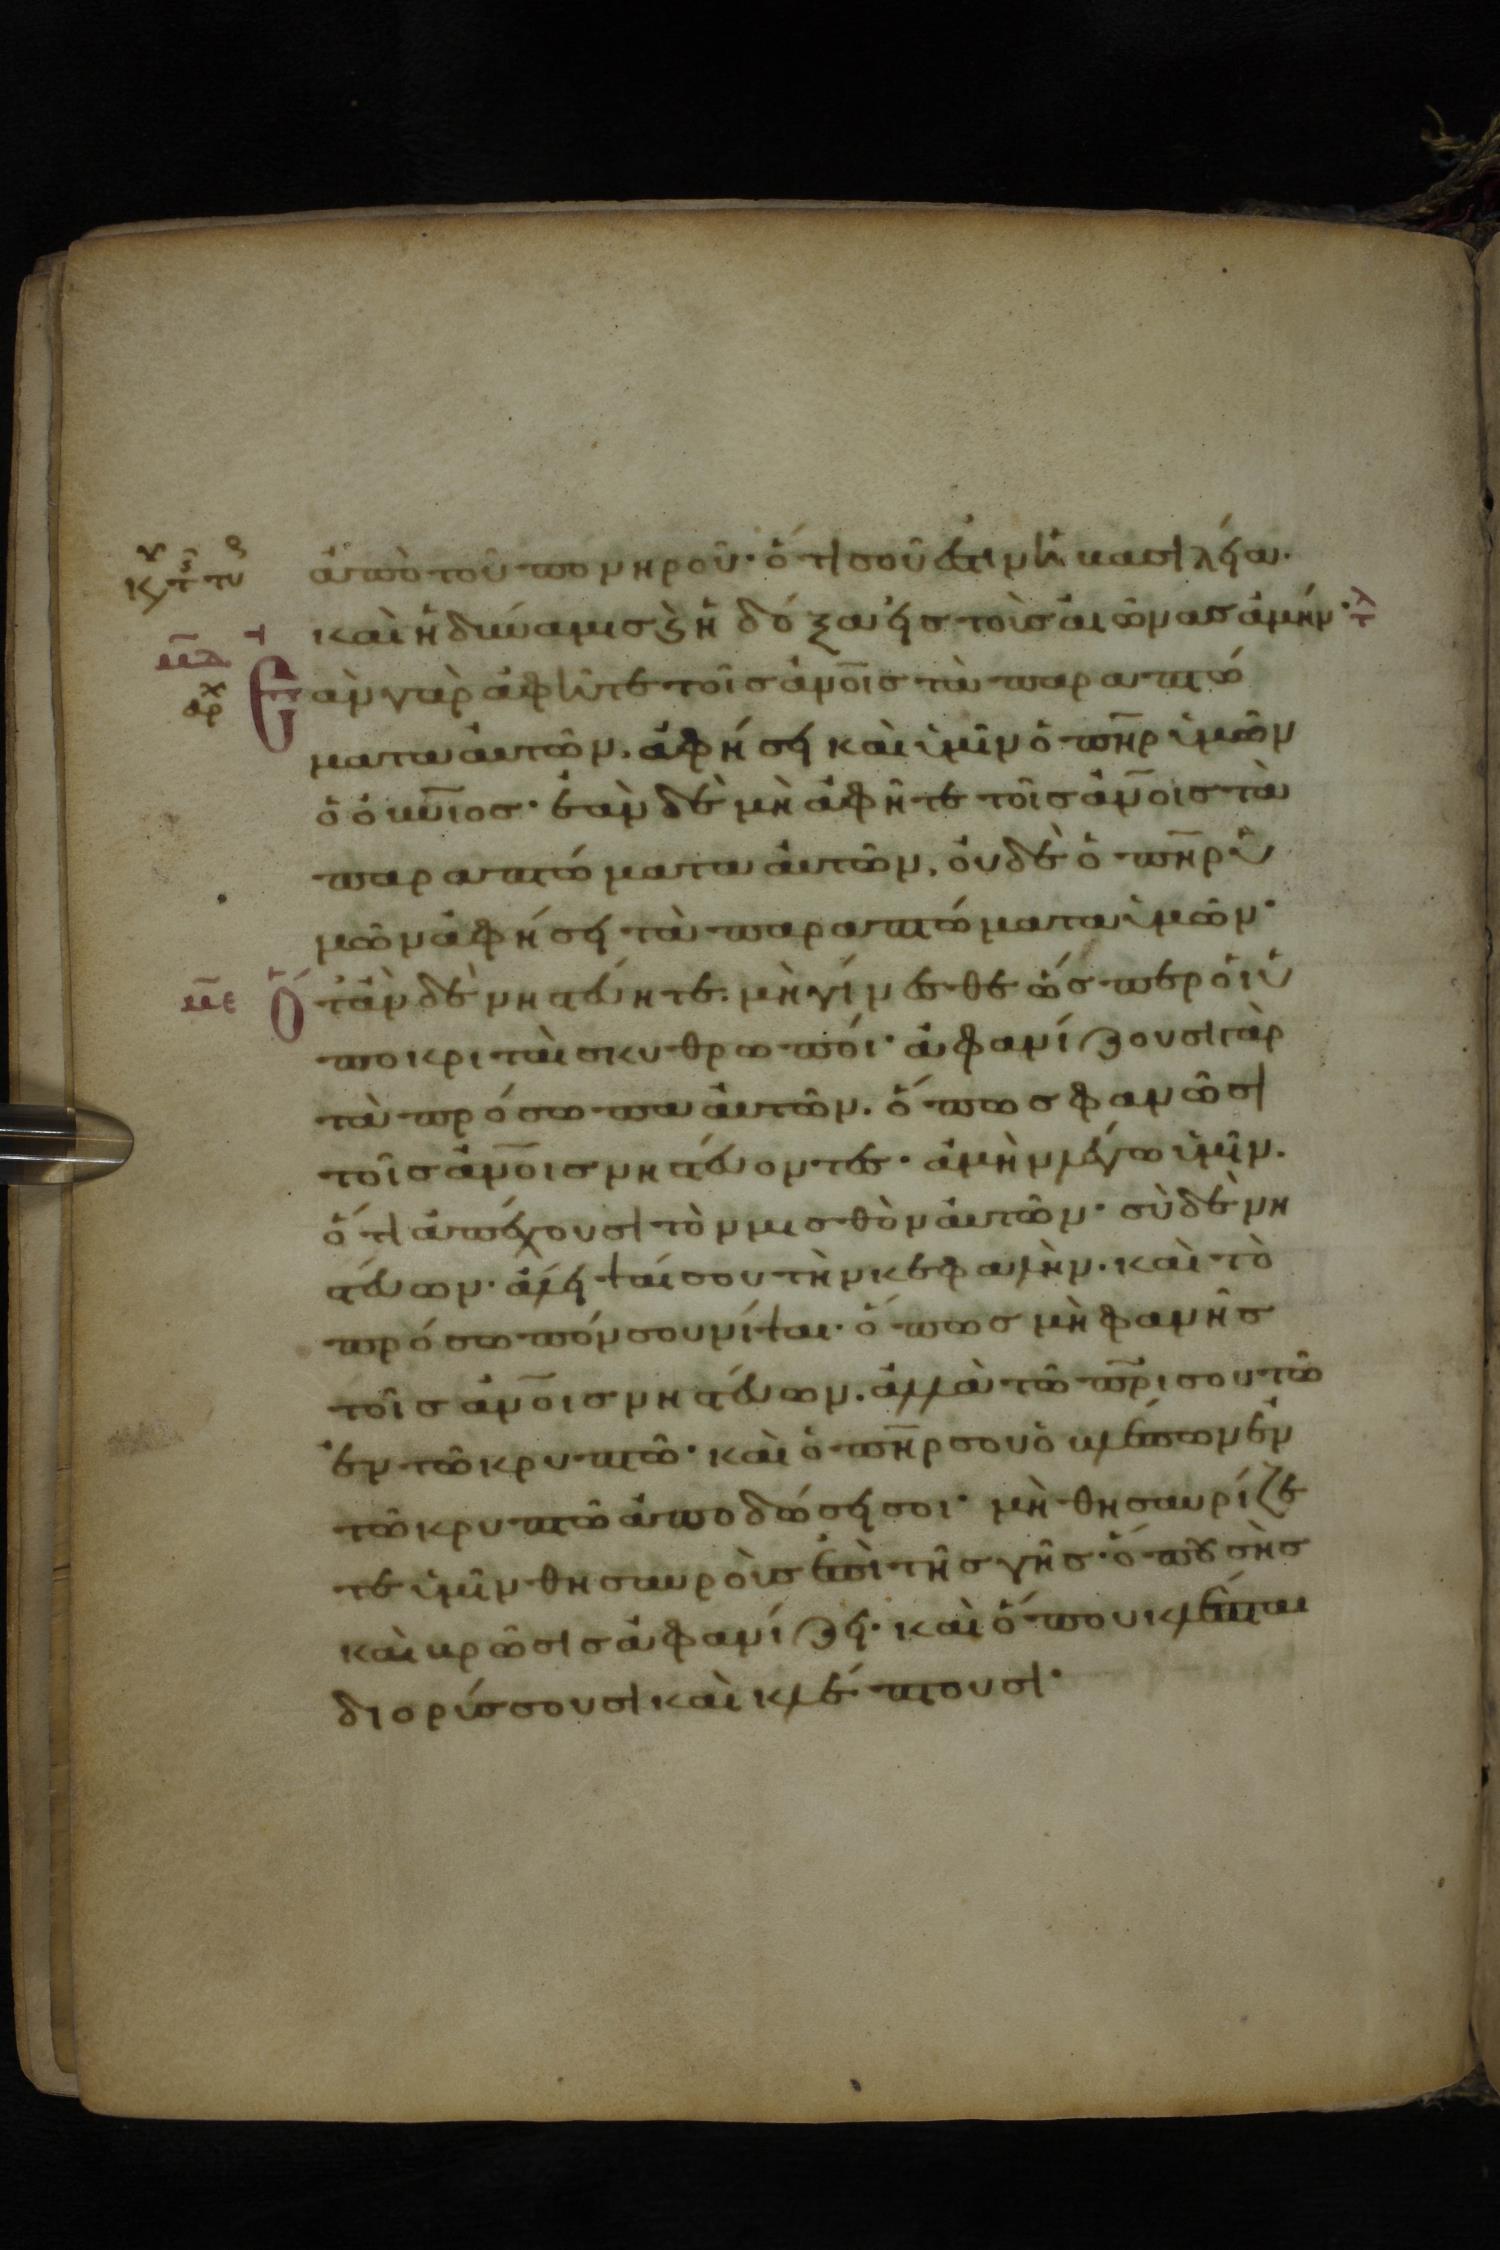 κυ τῆς τυ
ἀπὸ τοῦ πονηροῦ· ὅτι σοῦ ἐστιν ἡ βασιλεία·
καὶ ἡ δύναμις ϗ ἡ δόξα εἰς τοὺς αἰῶνας ἀμήν· τλ
μδ
αρχ
Ἐὰν γὰρ ἀφῆτε τοῖς ἀν̅οις τὰ παραπτώ
ματα αὐτῶν. ἀφήσει καὶ ὑμῖν ὁ πη̅ρ ὑμῶν
ὁ οὐν̅ιος· ἐὰν δὲ μὴ ἀφῆτε τοῖς ἀν̅οις τὰ
παραπτώματα αὐτῶν, οὐδὲ ὁ πη̅ρ ὑ
μῶν ἀφήσει τὰ παραπτώματα ὑμῶν·
με
Ὅταν δὲ νηστεύητε. μὴ γίνεσθε ὥσπερ οἱ ὑ
ποκριταὶ σκυθρωποί· ἀφανίζουσι γὰρ
τὰ πρόσωπα αὐτῶν. ὅπως φανῶσι
τοῖς ἀν̅οις νηστεύοντες· ἀμὴν λέγω ὑμῖν.
ὅτι ἀπέχουσι τὸν μισθὸν αὐτῶν· σὺ δὲ νη
στεύων· ἄλειψαί σου τὴν κεφαλὴν. καὶ τὸ
πρόσωπόν σου νίψαι· ὅπως μὴ φανῆς
τοῖς ἀν̅οις νηστεύων. ἀλλὰ τῶ πρ̅ι σου τῶ
ἐν τῶ κρυπτῶ· καὶ ὁ πη̅ρ σου ὁ βλέπων ἐν
τῶ κρυπτῶ ἀποδώσει σοι· μὴ θησαυρίζε
τε ὑμῖν θησαυροὺς ἐπὶ τῆς γῆς· ὅπου σὴς
καὶ βρῶσις ἀφανίζει· καὶ ὅπου κλέπται
διορύσσουσι καὶ κλέπτουσι·